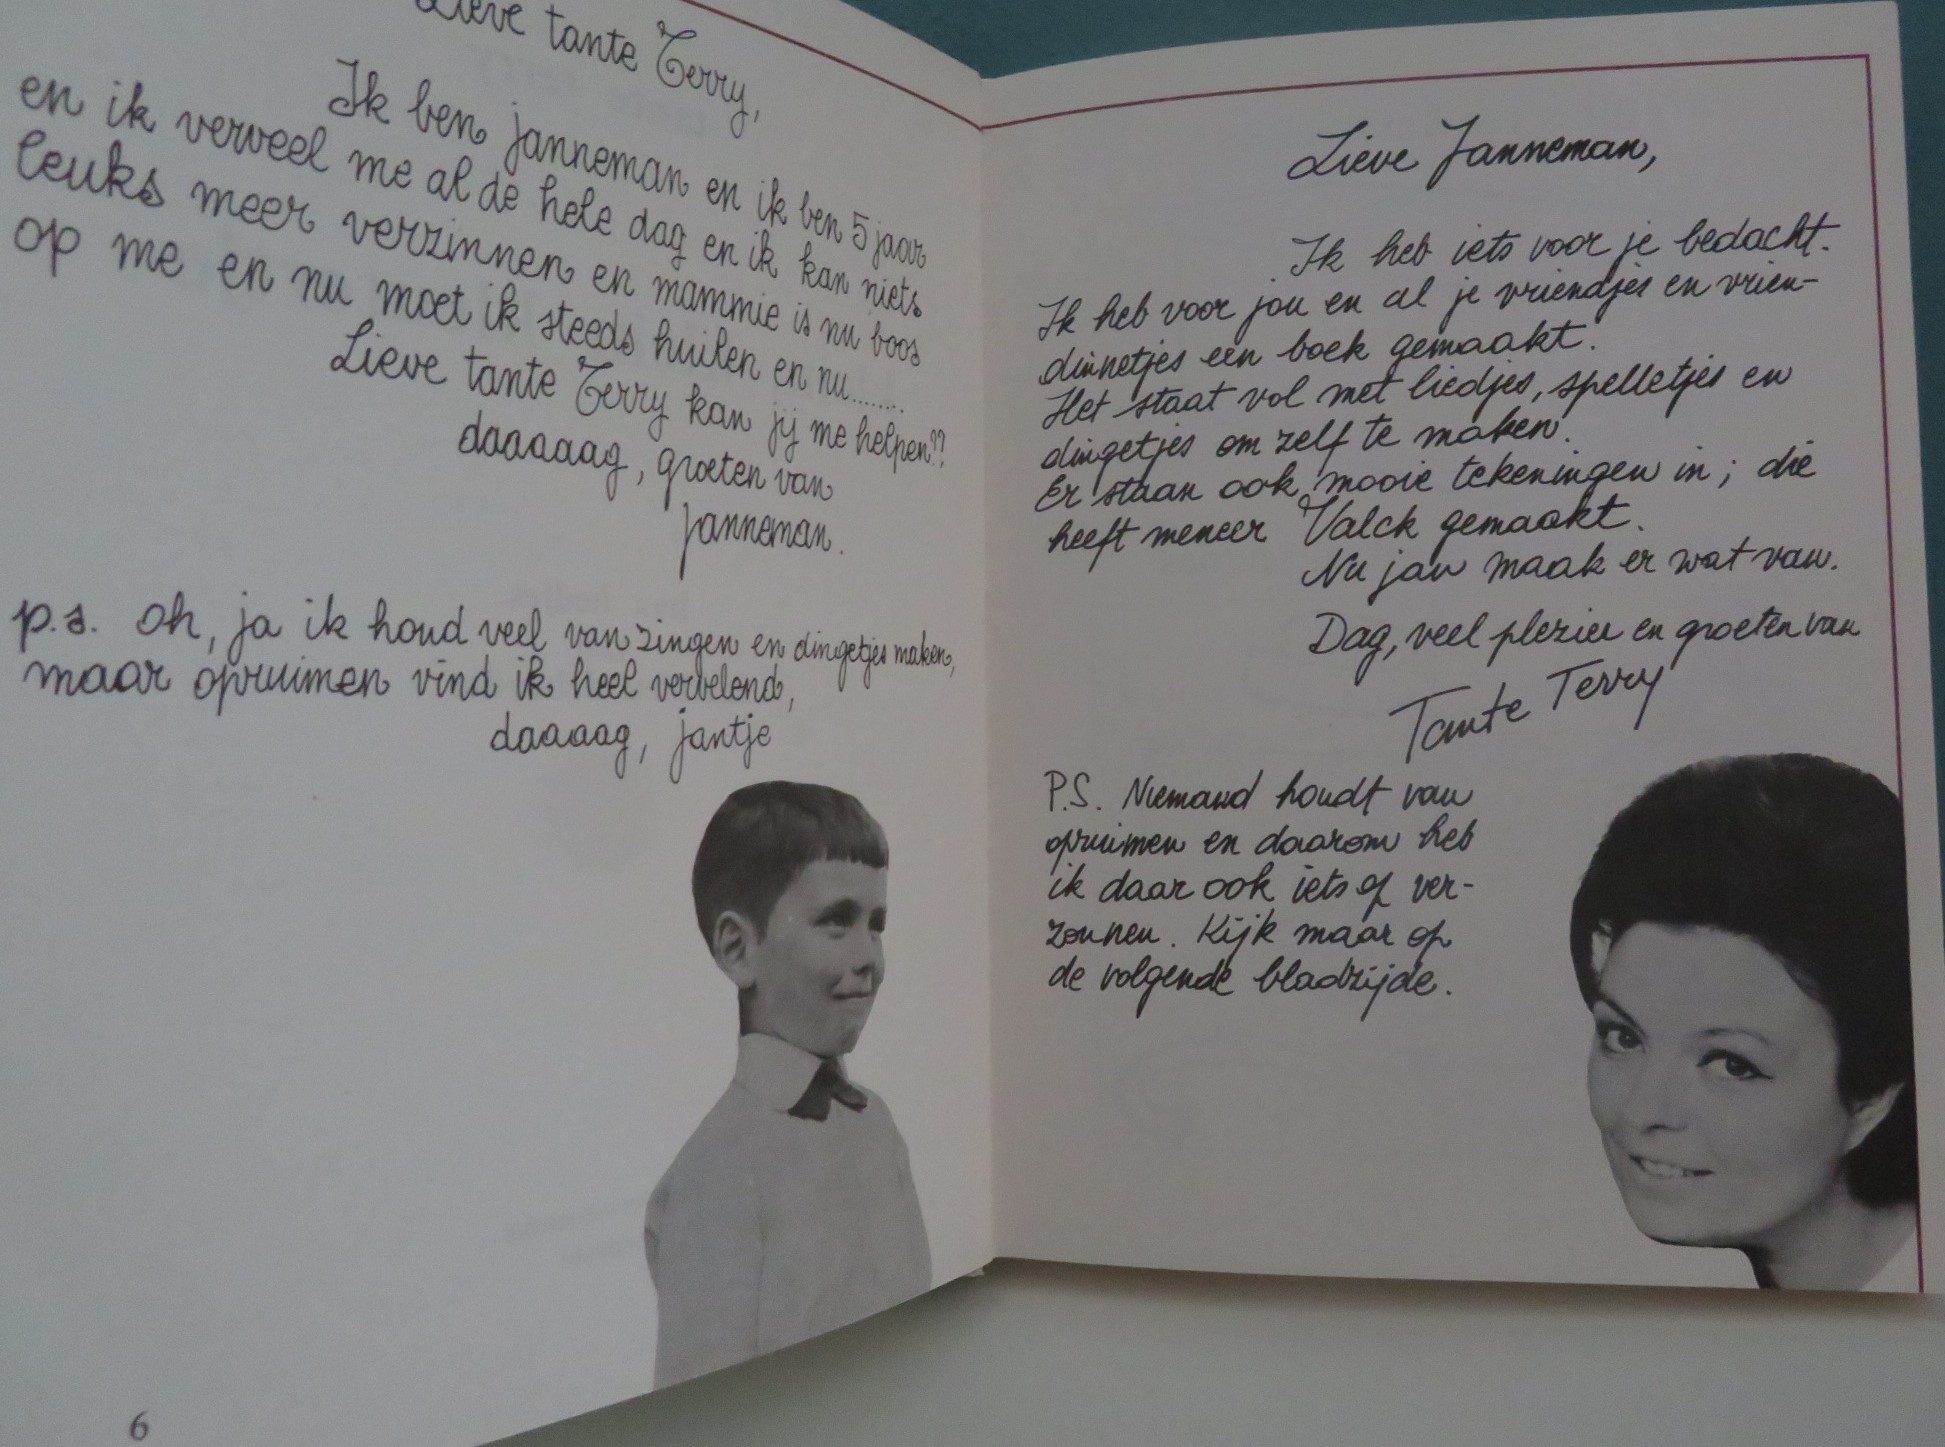 Lieve tante Terry,
Ik ben janneman en ik ben 5 jaar
en ik verveel me al de hele dag en ik kan niets
leuks meer verzinnen en mammie is nu boos
op me en nu moet ik steeds huilen en nu........
Lieve tante Terry kan jij me helpen??
daaaaag, groeten van
janneman.
p.s. oh, ja ik houd veel van zingen en dingetjes maken,
maar opruimen vind ik heel vervelend,
daaaag, jantje
6
Lieve Janneman,
Ik heb iets voor je bedacht.
Ik heb voor jou en al je vriendjes en vrien-
dinnetjes een boek gemaakt.
Het staat vol met liedjes, spelletjes en
dingetjes om zelf te maken.
Er staan ook mooie tekeningen in; die
heeft meneer Valck gemaakt.
Nu jan maak er wat van.
Dag, veel plezier en groeten van
Tante Terry
P.S. Niemand houdt van
opruimen en daarom heb
ik daar ook iets op ver-
zonnen. Kijk maar op
de volgende bladzijde.